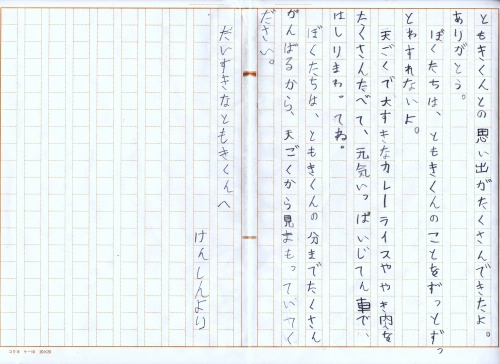 ともきくんとの思い出がたくさんできたよ。
ありがとう。
ぼくたちは、ともきくんのことをずっとずっ
とわすれないよ。
天ごくで大すきなカレーライスややき肉を
たくさんたべて、元気いっぱいじてん車で、
はしりまわってね。
ぼくたちは、ともきくんの分までたくさん
がんばるから、天ごくから見まもっていてく
ださい。
だいすきなともきくんへ
けんしんより